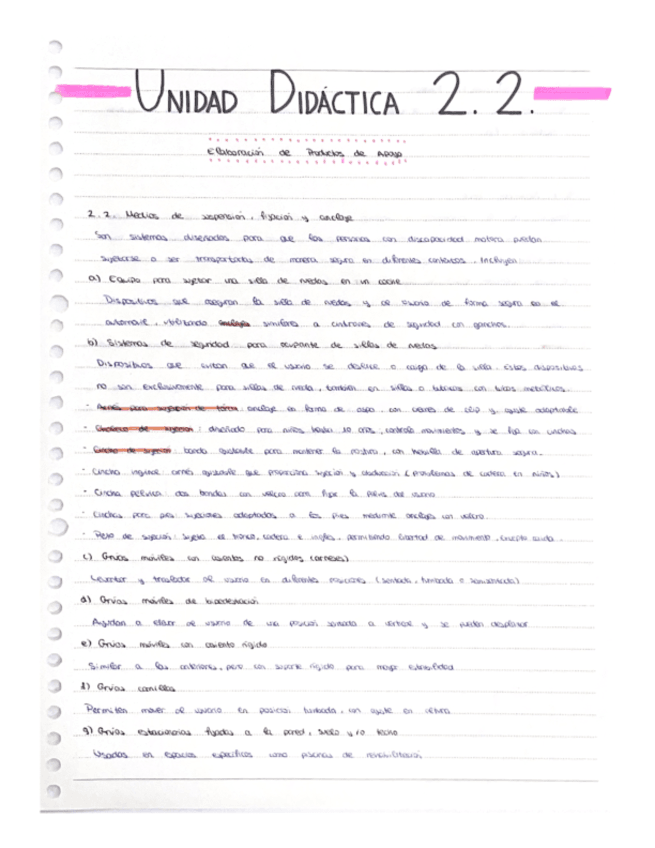 UNIDAD DIDÁCTICA 2.2.
Elaboración de Productos de Apoyo
2.2. Medios de suspensión, fijación y anclaje
Son sistemas diseñados para que las personas con discapacidad motora puedan
sujetarse o ser transportadas de manera segura en diferentes contextos. Incluyen
a) Equipo para sujetar una silla de ruedas en un coche
Dispositivos que aseguran la silla de ruedas y al usuario de forma segura en el
automóvil, utilizando anclajes similares a cinturones de seguridad con ganchos.
b) Sistemas de seguridad para ocupante de sillas de ruedas
Dispositivos que evitan que el usuario se deslice o caiga de la silla. Estos dispositivos
no son exclusivamente para sillas de rueda, también en sillas o con tubos metálicos.
- Arnés para sujeción de tórax: anclaje en forma de aspa, con cierres de clip y ajuste adaptable
- Chaleco de sujeción: diseñado para niños hasta 10 años, controla movimientos y se fija con cinchas
- Cincha de sujeción: banda ajustable para mantener la postura, con hebilla de apertura segura.
- Cincha inguinal: arnés ajustable que proporciona sujeción y abducción (problemas de cadera en niños)
- Cincha pélvica: dos bandas con velcro para fijar la pelvis del usuario
- Cinchas para pies: sujeciones adaptadas a los pies mediante anclajes con velcro.
- Peto de sujeción: sujeta el tronco, cadera e ingles, permitiendo libertad de movimiento, excepto caída.
c) Grúas móviles con asientos no rígidos (arneses)
Levantar y trasladar al usuario en diferentes posiciones (sentado, tumbado o semisentado)
d) Grúas móviles de bipedestación
Ayudan a elevar al usuario de una posición sentada a vertical y se pueden desplazar
e) Grúas móviles con asiento rígido
Similar a las anteriores, pero con soporte rígido para mayor estabilidad
f) Grúas camillas
Permiten mover al usuario en posición tumbada, con ajuste en altura
g) Grúas estacionarias fijadas a la pared, suelo y/o techo
Usadas en espacios específicos como piscinas de rehabilitación